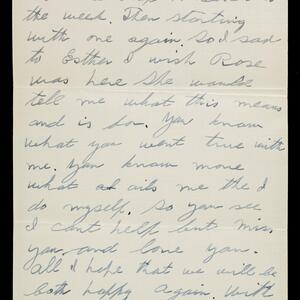 the week. Then starting
with one again. So I said
to Esther I wish Rose
was here she would
tell me what this means
and is for. You know
what you went true with
me. You know more
what ad ails me the I
do myself. So you see
I cant help but miss
you and love you.
all I hope that we will be
both happy again. with